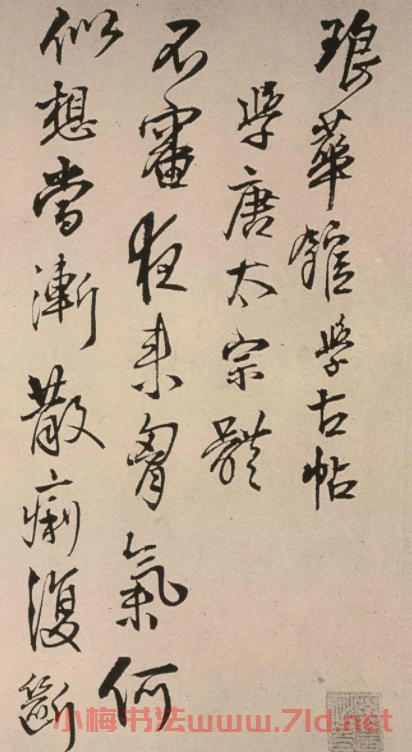 琅華館學古帖
學唐太宗體
不審夜來胷氣何
似想當漸散痢復斷
小梅书法www.7ld.net